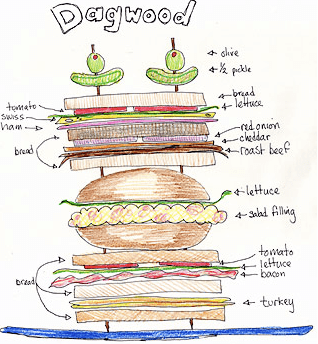 Dagwood
olive
1/2 pickle
bread
lettuce
tomato
swiss
ham
bread
red onion
cheddar
roast beef
lettuce
salad filling
tomato
lettuce
bacon
bread
turkey